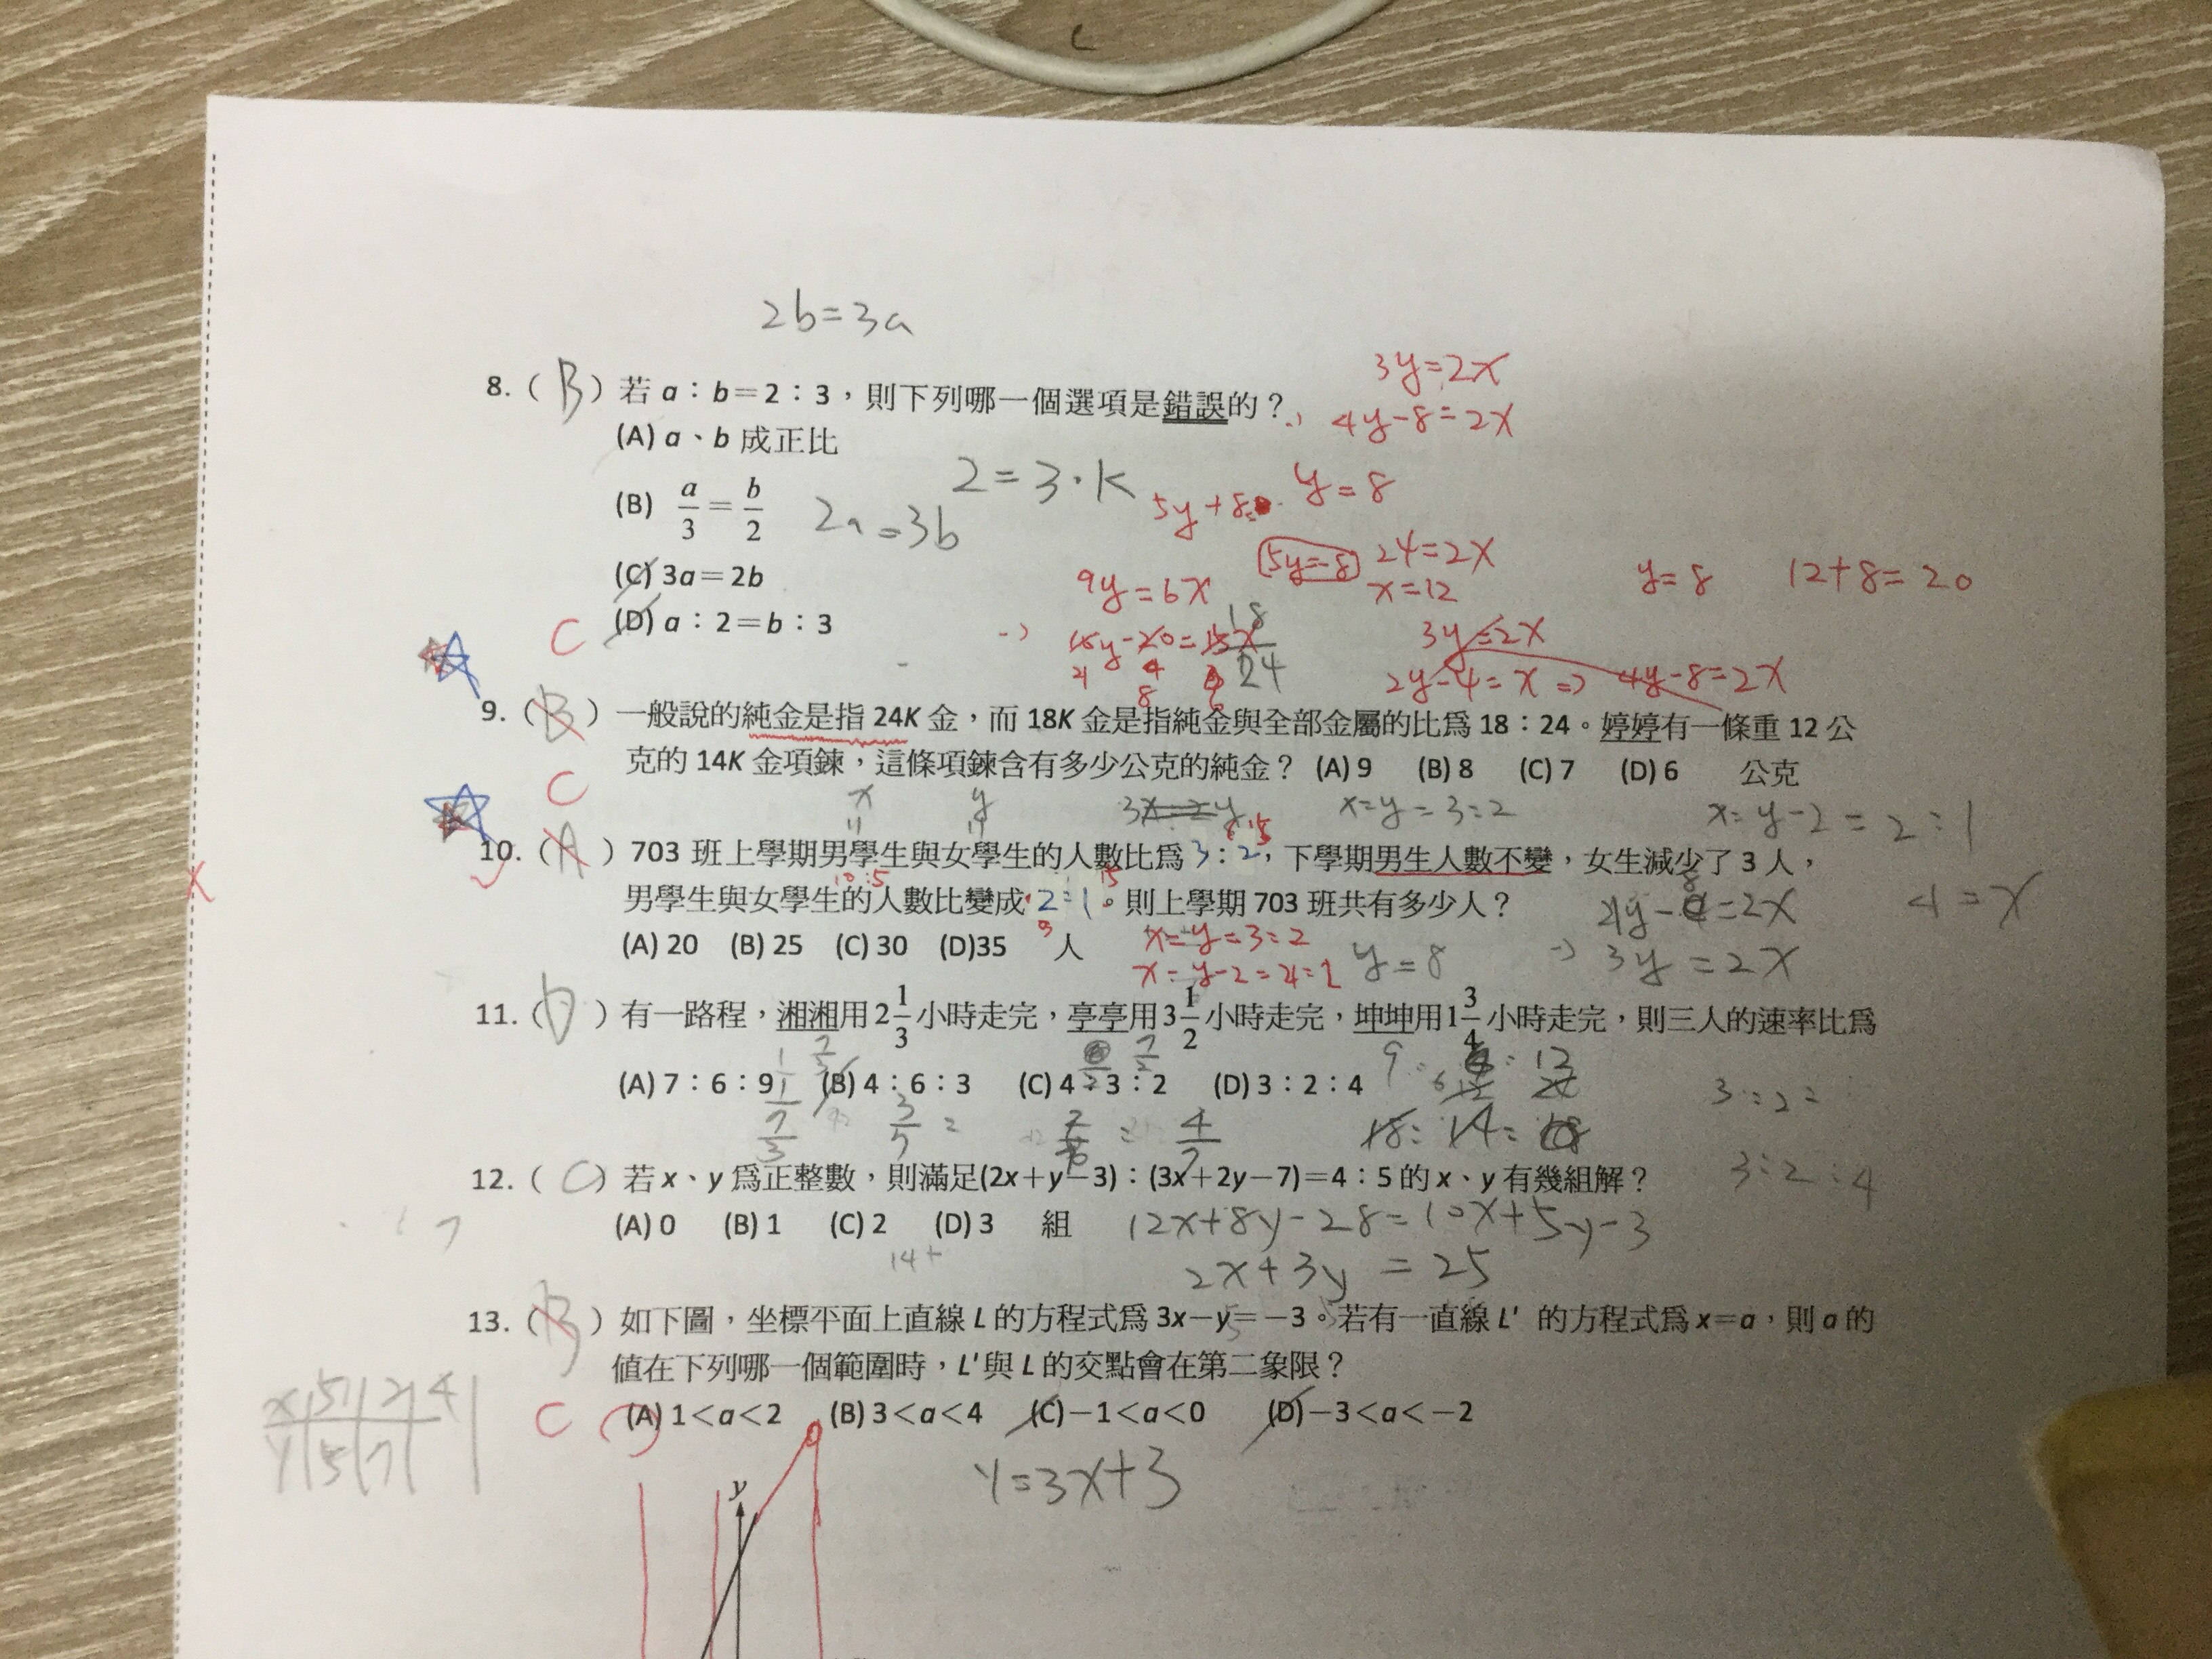 2b=3a
8.（B）若 a：b＝2：3，則下列哪一個選項是錯誤的？
3y=2x
4y-8=2x
(A) a、b 成正比
2=3·k
y=8
5y+8
(B) a/3＝b/2
2a=3b
5y=8
24=2x
(C) 3a＝2b
9y=6x
x=12
y=8
12+8=20
(D) a：2＝b：3
C
18
24
3y=2x
2y-4=x => 4y-8=2x
9.（B）一般說的純金是指 24K 金，而 18K 金是指純金與全部金屬的比爲 18：24。婷婷有一條重 12 公
克的 14K 金項鍊，這條項鍊含有多少公克的純金？ (A) 9 (B) 8 (C) 7 (D) 6 公克
C
x y 3x=2y x:y=3:2 x:y-2=2:1
10.（A）703 班上學期男學生與女學生的人數比爲 3:2，下學期男生人數不變，女生減少了 3 人，
10:5
男學生與女學生的人數比變成 2:1。則上學期 703 班共有多少人？
=2x
4=x
(A) 20 (B) 25 (C) 30 (D)35 人
x:y=3:2
x:y-2=2:1
y=8
3y=2x
11.（D）有一路程，湘湘用 2 1/3 小時走完，亭亭用 3 1/2 小時走完，坤坤用 1 3/4 小時走完，則三人的速率比爲
(A) 7：6：9 (B) 4：6：3 (C) 4：3：2 (D) 3：2：4
9:6:12
3:2:
3:2:4
12.（C）若 x、y 爲正整數，則滿足(2x＋y－3)：(3x＋2y－7)＝4：5 的 x、y 有幾組解？
(A) 0 (B) 1 (C) 2 (D) 3 組
12x+8y-28=10x+5y-3
14+
2x+3y=25
13.（B）如下圖，坐標平面上直線 L 的方程式爲 3x－y＝－3。若有一直線 L' 的方程式爲 x＝a，則 a 的
值在下列哪一個範圍時，L'與 L 的交點會在第二象限？
C
(A) 1＜a＜2 (B) 3＜a＜4 (C)－1＜a＜0 (D)－3＜a＜－2
y=3x+3
y